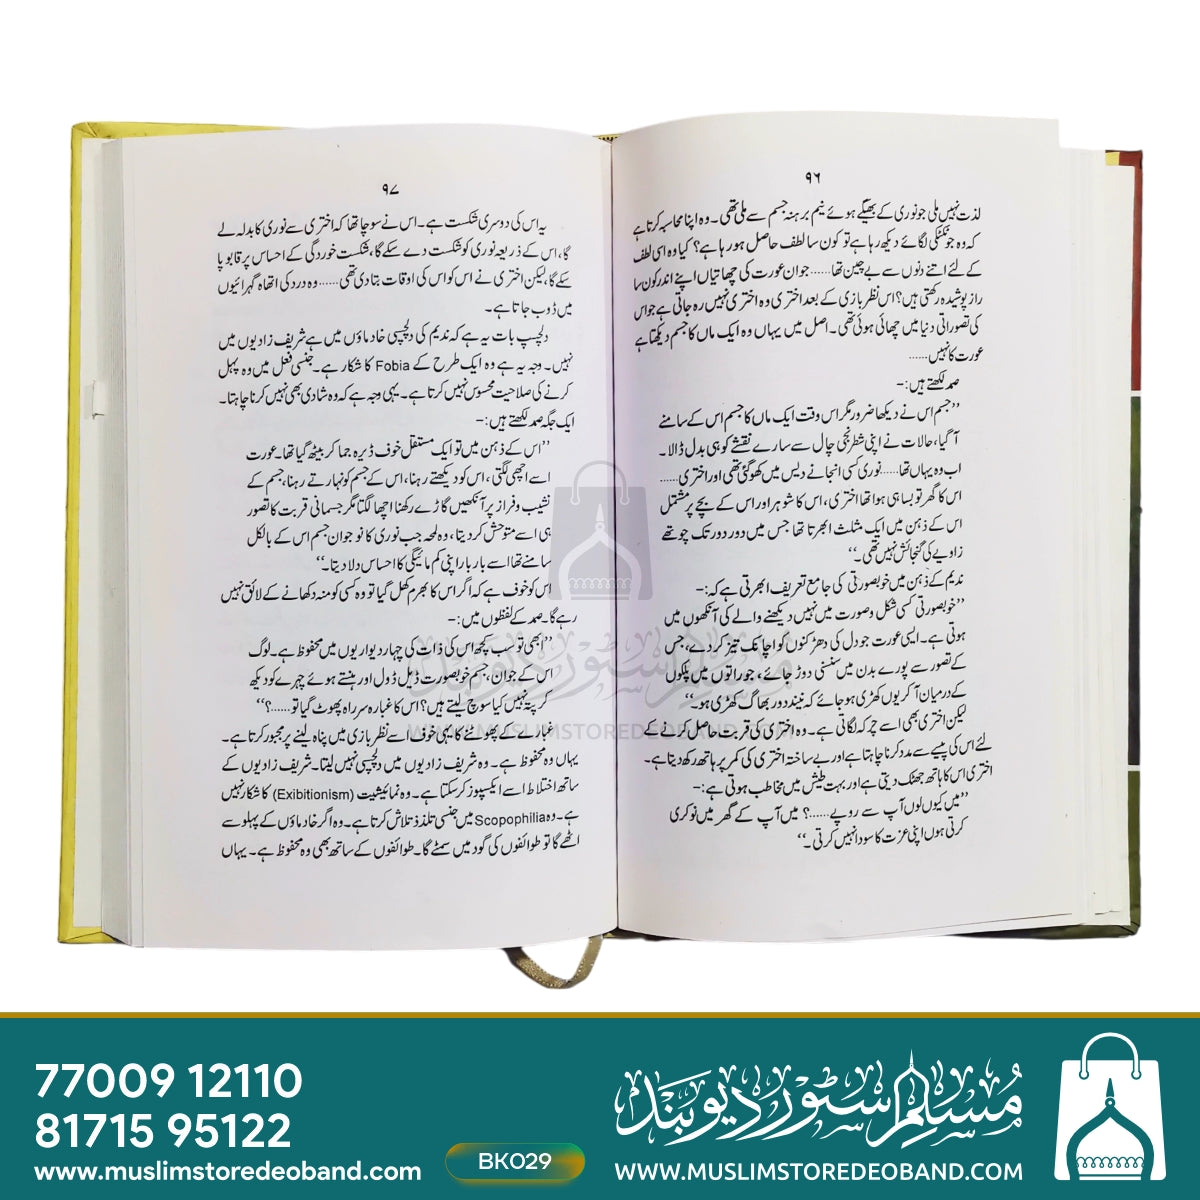 ۹۶
لذت نہیں ملی جو نوری کے بھیگے ہوئے نیم برہنہ جسم سے ملی تھی۔ وہ اپنا محاسبہ کرتا ہے
کہ وہ جو ٹکٹکی لگائے دیکھ رہا ہے تو کون سا لطف حاصل ہو رہا ہے؟ کیا وہ اسی لطف
کے لئے اتنے دنوں سے بے چین تھا...... جوان عورت کی چھاتیاں اپنے اندر کون سا
راز پوشیدہ رکھتی ہیں؟ اس نظر بازی کے بعد اختری وہ اختری نہیں رہ جاتی ہے جو اس
کی تصوراتی دنیا میں چھائی ہوئی تھی۔ اصل میں یہاں وہ ایک ماں کا جسم دیکھتا ہے
عورت کا نہیں......
صمد لکھتے ہیں:-
”جسم اس نے دیکھا ضرور مگر اس وقت ایک ماں کا جسم اس کے سامنے
آ گیا، حالات نے اپنی شطرنجی چال سے سارے نقشے کو ہی بدل ڈالا۔
اب وہ یہاں تھا...... نوری کسی انجانے دیس میں کھو گئی تھی اور اختری......
اس کا گھر تو بسا ہی ہوا تھا اختری، اس کا شوہر اور اس کے بچے پر مشتمل
اس کے ذہن میں ایک مثلث ابھرتا تھا جس میں دور دور تک چوتھے
زاویے کی گنجائش نہیں تھی۔“
ندیم کے ذہن میں خوبصورتی کی جامع تعریف ابھرتی ہے کہ:-
”خوبصورتی کسی شکل وصورت میں نہیں دیکھنے والے کی آنکھوں میں
ہوتی ہے۔ ایسی عورت جو دل کی دھڑکنوں کو اچانک تیز کر دے، جس
کے تصور سے پورے بدن میں سنسنی دوڑ جائے، جو راتوں میں پلکوں
کے درمیان آ کر یوں کھڑی ہو جائے کہ نیند دور بھاگ کھڑی ہو۔“
لیکن اختری بھی اسے چرکہ لگاتی ہے۔ وہ اختری کی قربت حاصل کرنے کے
لئے اس کی پیسے سے مدد کرنا چاہتا ہے اور بے ساختہ اختری کی کمر پر ہاتھ رکھ دیتا ہے۔
اختری اس کا ہاتھ جھٹک دیتی ہے اور بہت طیش میں مخاطب ہوتی ہے:-
”میں کیوں لوں آپ سے روپے......؟ میں آپ کے گھر میں نوکری
کرتی ہوں اپنی عزت کا سودا نہیں کرتی۔“
۹۷
یہ اس کی دوسری شکست ہے۔ اس نے سوچا تھا کہ اختری سے نوری کا بدلہ لے
گا، اس کے ذریعہ نوری کو شکست دے سکے گا، شکست خوردگی کے احساس پر قابو پا
سکے گا، لیکن اختری نے اس کو اس کی اوقات بتا دی تھی...... وہ درد کی اتھاہ گہرائیوں
میں ڈوب جاتا ہے۔
دلچسپ بات یہ ہے کہ ندیم کی دلچسپی خادماؤں میں ہے شریف زادیوں میں
نہیں۔ وجہ یہ ہے وہ ایک طرح کے Fobia کا شکار ہے۔ جنسی فعل میں وہ پہل
کرنے کی صلاحیت محسوس نہیں کرتا ہے۔ یہی وجہ ہے کہ وہ شادی بھی نہیں کرنا چاہتا۔
ایک جگہ صمد لکھتے ہیں:-
”اس کے ذہن میں تو ایک مستقل خوف ڈیرہ جما کر بیٹھ گیا تھا۔ عورت
اسے اچھی لگتی، اس کو دیکھتے رہنا، اس کے جسم کو نہارتے رہنا، جسم کے
نشیب و فراز پر آنکھیں گاڑے رکھنا اچھا لگتا مگر جسمانی قربت کا تصور
ہی اسے متوحش کر دیتا، وہ لمحہ جب نوری کا نوجوان جسم اس کے بالکل
سامنے تھا اسے بار بار اپنی کم مائیگی کا احساس دلا دیتا۔“
اس کو خوف ہے کہ اگر اس کا بھرم کھل گیا تو وہ کسی کو منہ دکھانے کے لائق نہیں
رہے گا۔ صمد کے لفظوں میں:-
”ابھی تو سب کچھ اس کی ذات کی چہار دیواریوں میں محفوظ ہے۔ لوگ
اس کے جوان، جسم خوبصورت ڈیل ڈول اور ہنستے ہوئے چہرے کو دیکھ
کر پتہ نہیں کیا سوچ لیتے ہیں؟ اس کا غبارہ سرراہ پھوٹ گیا تو......؟“
غبارے کے پھوٹنے کا یہی خوف اسے نظر بازی میں پناہ لینے پر مجبور کرتا ہے۔
یہاں وہ محفوظ ہے۔ وہ شریف زادیوں میں دلچسپی نہیں لیتا۔ شریف زادیوں کے
ساتھ اختلاط اسے ایکسپوز کر سکتا ہے۔ وہ نمائیشیت (Exibitionism) کا شکار نہیں
ہے۔ وہ Scopophilia میں جنسی تلذذ تلاش کرتا ہے۔ وہ اگر خادماؤں کے پہلو سے
اٹھے گا تو طوائفوں کی گود میں سمٹے گا۔ طوائفوں کے ساتھ بھی وہ محفوظ ہے۔ یہاں
مسلم سٹور دیوبند
WWW.MUSLIMSTOREDEOBAND.COM
77009 12110
81715 95122
www.muslimstoredeoband.com
BK029
مسلم سٹور دیوبند
WWW.MUSLIMSTOREDEOBAND.COM